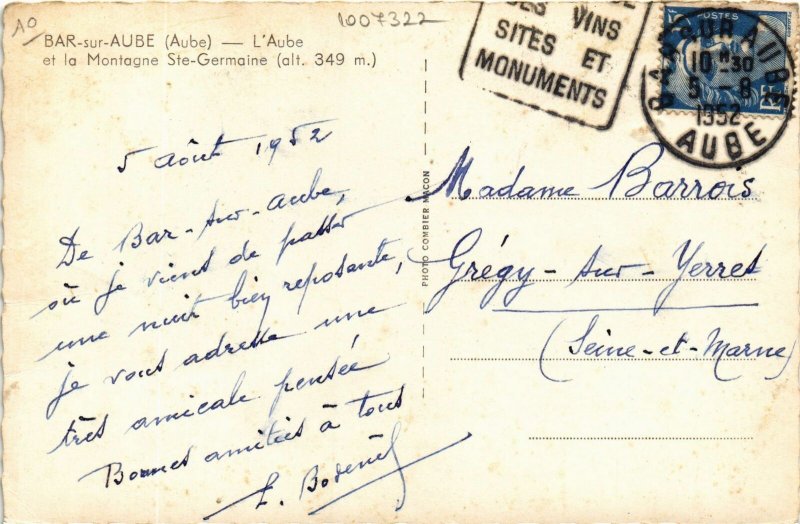 10
1007322
BAR-sur-AUBE (Aube) — L'Aube
et la Montagne Ste-Germaine (alt. 349 m.)
DES VINS
SITES ET
MONUMENTS
POSTES
BAR SUR AUBE
10 H 30
5 - 8
1952
AUBE
5 août 1952
De Bar-sur-Aube,
où je viens de passer
une nuit bien reposante,
je vous adresse une
très amicale pensée
Bonnes amitiés à tous
PHOTO COMBIER MACON
Madame Barrois
Grégy-sur-Yerres
(Seine-et-Marne)